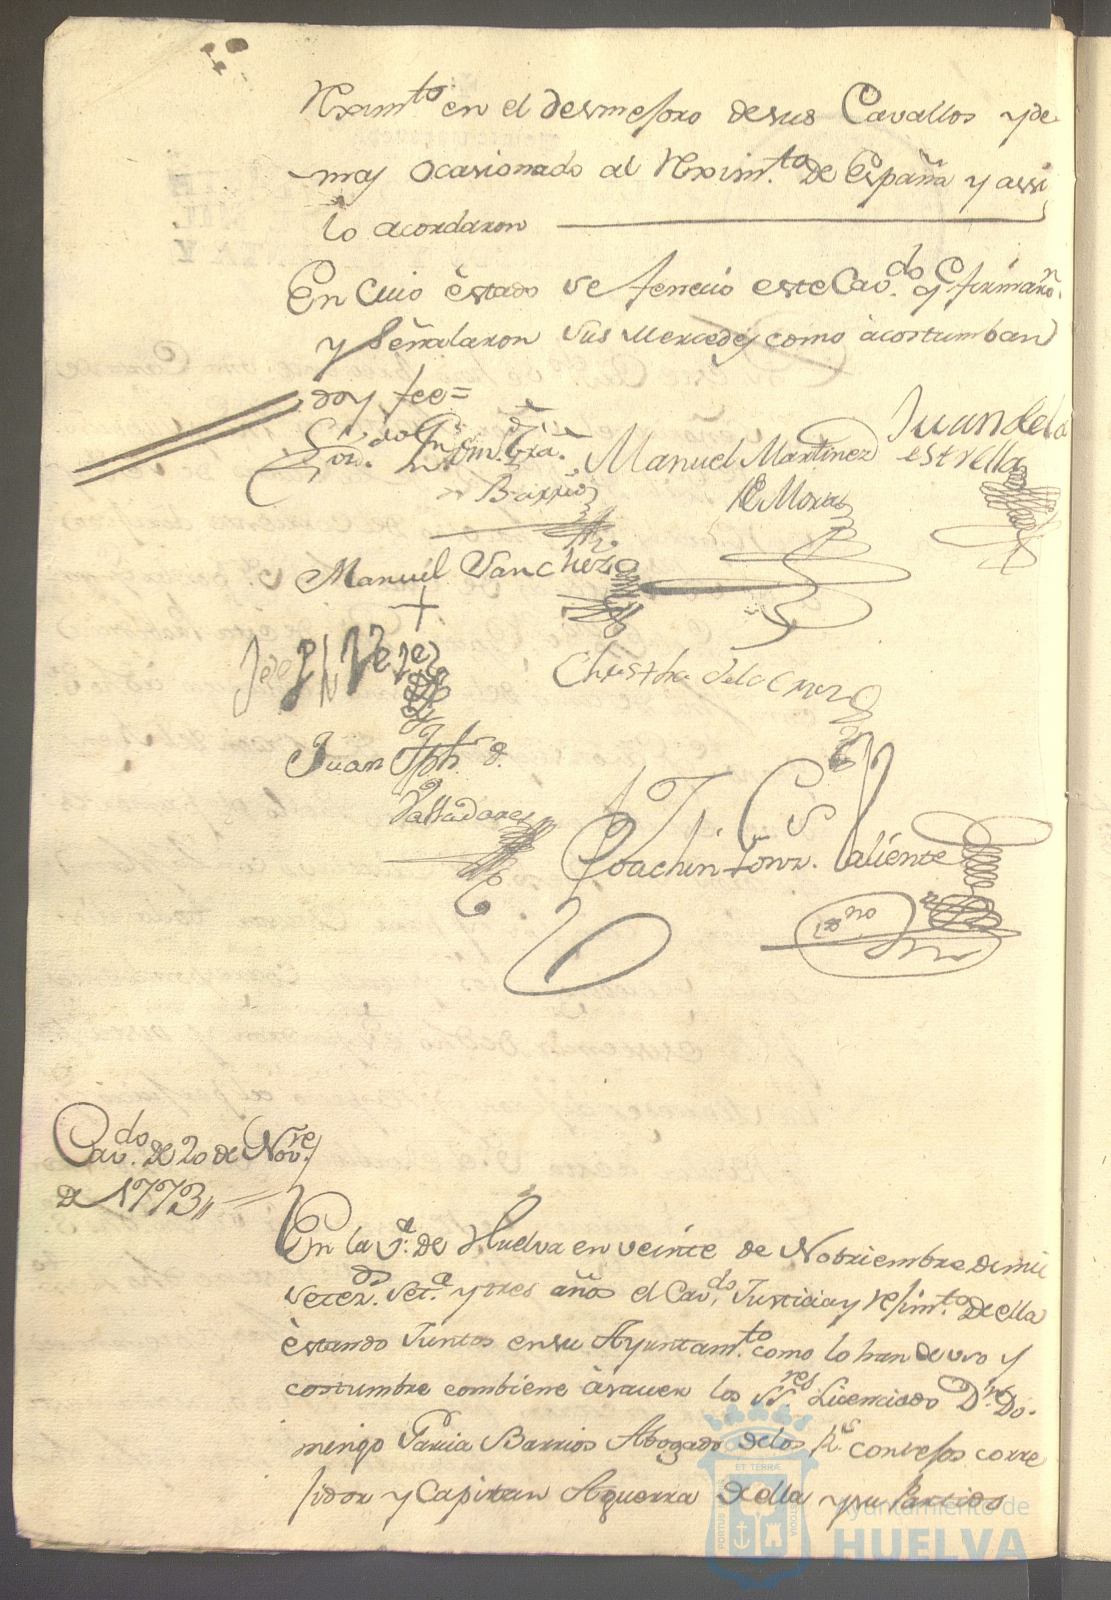 Rximto en el desmesoro de sus Cavallos y de
mas ocasionado al Rxim.to de España y assi
lo acordaron
En cuio estado se fenecio este Cav.do y firmaron
y señalaron sus Mercedes como acostumban
doy fee=
Lizdo. Dn Dom. Grã.
Barrios
Manuel Martinez
de Mora
Juan de la
estrella
Manuel Sanchez
+
Christha de la Cruz
Juan Jph. d.
Valladares
Joachin Gonz. Valiente
ss.no
Cav.do de 20 de Nov.re
de 1773
En la V.a de Huelva en veinte de Nobriembre de mil
setez.os set.a y tres años el Cav.do Justicia y resim.to de ella
estando Juntos en su Ayuntam.to como lo han de uso y
costumbre combiene à saver los SS.res Licenciado D.n Do-
mingo Garcia Barrios Abogado de los R.s consesos corre
sidor y Capitan Aguerra de ella y su Partido
PORTUS
ET TERRÆ
CUSTODIA
Ayuntamiento de
HUELVA